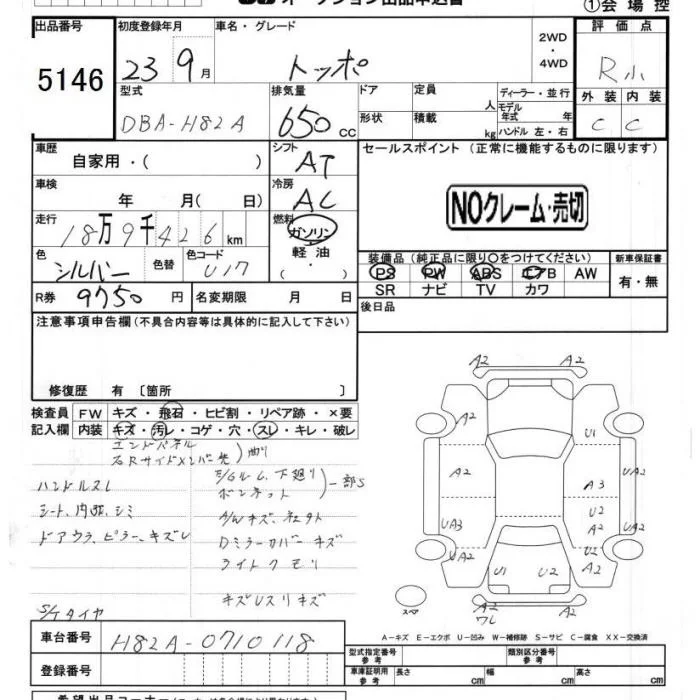 オークション出品申込書
①会場控
出品番号 初度登録年月 車名・グレード 評価点
5146 23 9月 トッポ 2WD・4WD R小
型式 排気量 ドア 定員 人 ディーラー・並行 外装 内装
DBA-H82A 650cc 形状 積載 kg モデル年式 年 ハンドル 左・右 C C
車歴 自家用・( ) シフト AT セールスポイント(正常に機能するものに限ります)
車検 年 月( 日) 冷房 AC NOクレーム・売切
走行 18万9千426km 燃料 ガソリン・軽油・( )
色 シルバー 色替 色コード U17
装備品(純正品に限り○をつけてください) 新車保証書
PS PW ABS エアB AW 有・無
SR ナビ TV カワ
R券 9750円 名変期限 月 日 後日品
注意事項申告欄(不具合内容等は具体的に記入して下さい)
修復歴 有 〔箇所 〕
検査員 FW キズ・飛石・ヒビ割・リペア跡・×要
記入欄 内装 キズ・汚レ・コゲ・穴・スレ・キレ・破レ
エンドパネル
右Rサイドメンバー先 曲り
ハンドルスレ
E/Gルーム、下廻り
ボンネット 一部S
シート、内張、シミ
A/Wキズ
ドアウラ、ピラー、キズレ
Dミラーカバーキズ
ライトクモリ
キズUスリキズ
S/Tタイヤ
A2 A2
A2
U1
A2 UA2
A3
U2
UA3 A2 UA2
U2
U1 U2 A2
A2
A2 A2
ワレ
スペア
A-キズ E-エクボ U-凹み W-補修跡 S-サビ C-腐食 XX-交換済
車台番号 H82A-0710118
登録番号
型式指定番号 参考 類別区分番号 参考
車庫証明用 参考 長さ cm 幅 cm 高さ cm
希望出品コーナー